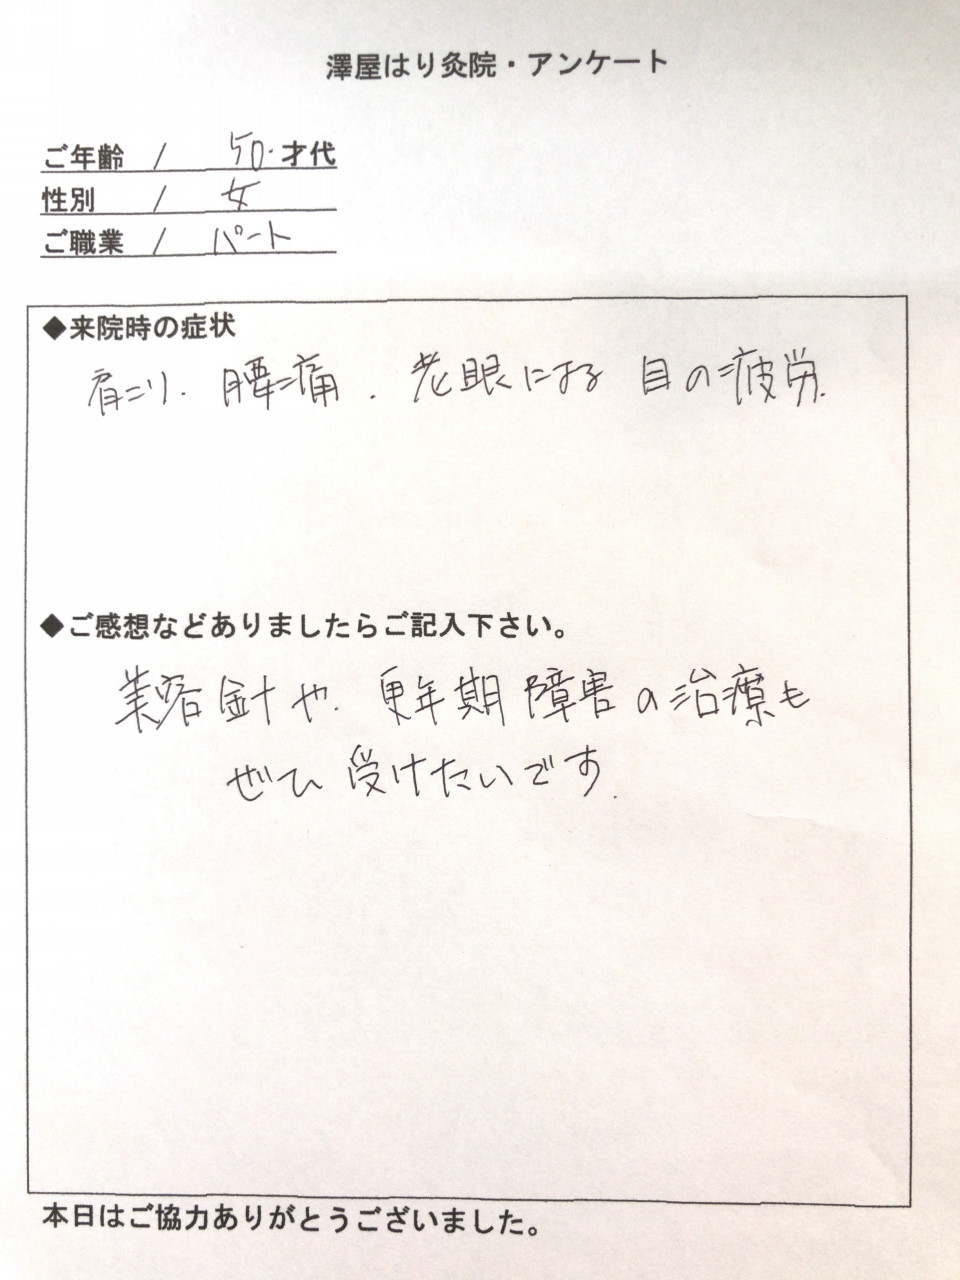 澤屋はり灸院・アンケート
ご年齢 / 50.才代
性別 / 女
ご職業 / パート
◆来院時の症状
肩こり. 腰痛. 老眼による 目の疲労.
◆ご感想などありましたらご記入下さい。
美容針や. 更年期障害の治療も
ぜひ 受けたいです.
本日はご協力ありがとうございました。